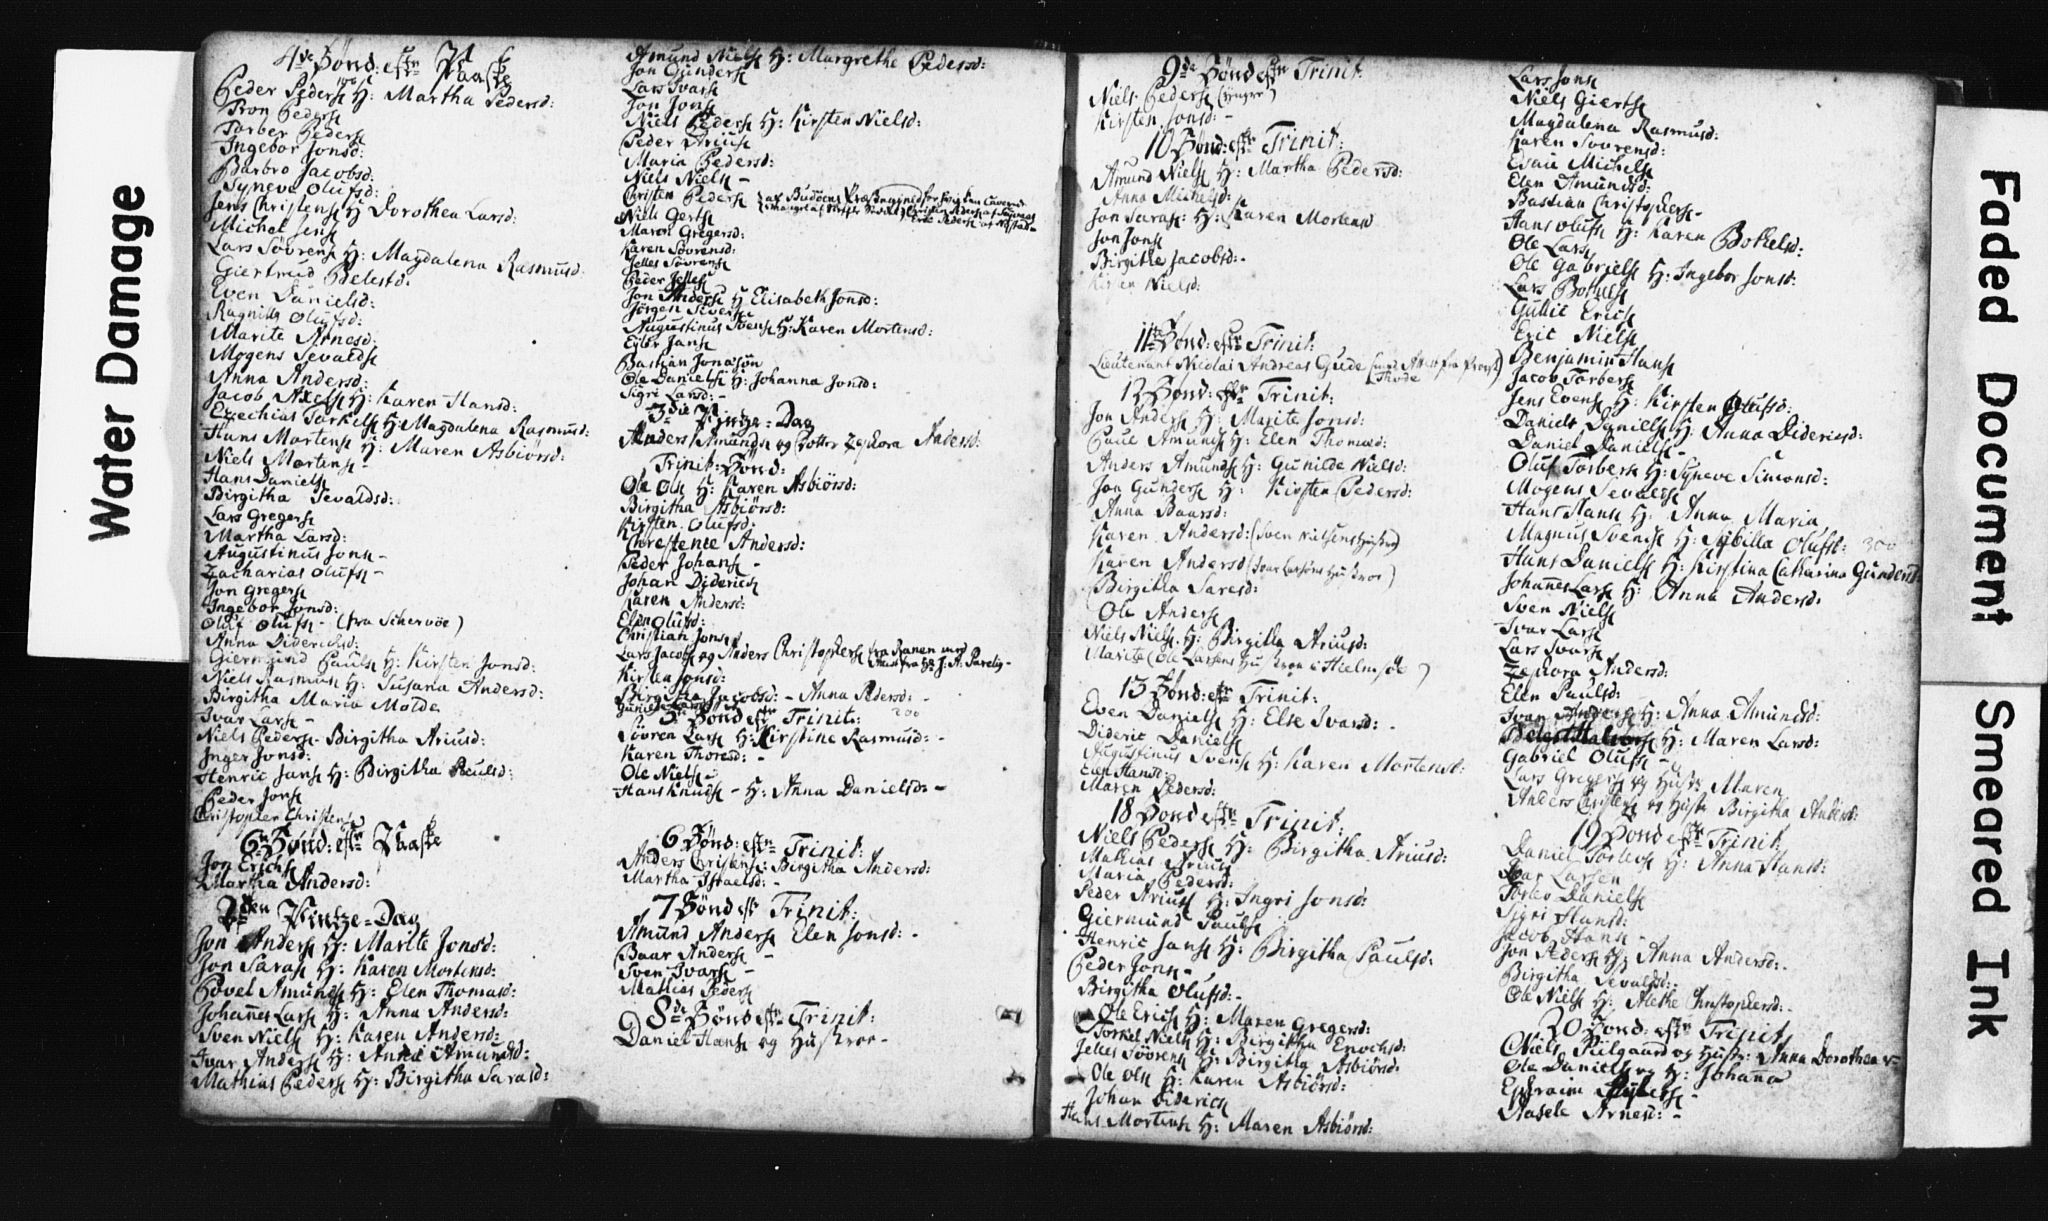 Water Damage
4de Sønd: eftr Paaske
Peder Peders H: Martha Peders d:
Tron Peders
Torber Peders
Ingebor Jons d:
Barbro Jacobsd:
Syneve Olufsd:
Jens Christens H: Dorothea Larsd:
Michel Jens
Lars Sövrens H: Magdalena Rasmusd:
Giertrud Belestd.
Even Danielsd:
Ragnilla Olufsd:
Marite Arnesd:
Mogens Sevalds
Anna Andersd:
Jacob Axels H: Karen Hansd:
Ezechias Torkels H: Magdalena Rasmusd:
Hans Mortens H: Maren Asbiörsd:
Niels Mortens -
Hans Daniels
Birgitha Sevaldsd:
Lars Gregers
Martha Larsd:
Augustinus Jons -
Zacharias Olufs -
Jon Gregers
Ingebor Jonsd:
Oluf Olufs - (fra Schervöe)
Anna Diderichsd:
Giermund Pauls H: Kirsten Jonsd:
Niels Rasmus H: Susana Andersd:
Birgitha Maria Molde
Ivar Lars -
Niels Peders - Birgitha Ariusd:
Inger Jonsd:
Henric Jans H: Birgitha Paulsd:
Peder Jons
Christopher Christens
6te Sønd: eftr Paaske
Jon Erichs
Martha Andersd:
2den Pintze-Dag
Jon Anders H: Marite Jonsd:
Jon Saras H: Karen Mortensd:
Povel Amunds H: Elen Thomasd:
Johannes Lars H: Anna Andersd:
Sven Niels H: Karen Andersd:
Ivar Anders H: Anna Amundsd:
Mathias Peders H: Birgitha Sarasd:
Amund Niels H: Margrethe Pedersd:
Jon Gunders
Lars Ivars
Jon Jons
Niels Peders H: Kirsten Nielsd:
Peder Arius
Maria Pedersd:
Niels Niels -
Christen Peders
Niels Gerts
Maren Gregersd:
Karen Sövrensd:
Jelles Sövrens
Peder Jelles
Jon Anders H: Elisabeth Jonsd:
Jörgen Sivers
Augustinus Svens H: Karen Mortensd:
Eyler Jans
Bastian Jonasøn
Ole Daniels H: Johanna Jonsd:
Sigri Larsd: -
3die Pintze-Dag
Anders Amunds og Dotter Zephora Andersd:
Trinit: Sønd:
Ole Ols H: Karen Asbiörsd:
Birgitha Asbiörsd:
Kirsten Olufsd:
Christence Andersd:
Peder Johans -
Johan Diderichs
Karen Andersd:
Elen Olufsd:
Christian Jons
Lars Jacobs og Anders Christophers fra Ranen med
Kirsten Jonsd:
Birgitha Jacobsd: - Anna Pedersd: -
5te Sønd eftr Trinit: 200
Sövren Lars H: Kirstine Rasmusd: -
Karen Thoresd: -
Ole Niels -
Hans Knuds - H: Anna Danielsd: -
6 Sønd: eftr Trinit:
Anders Christens: Birgitha Andersd:
Martha Israelsd: -
7 Sønd eftr Trinit:
Amund Anders Elen Jonsd: -
Baar Anders -
Sven Ivars -
Mathias Peders
8de Sønd eftr Trinit:
Daniel Hans og Hustroe -
9de Sønd eftr Trinit:
Niels Peders (Yngre)
Kirsten Jonsd: -
10 Sønd: eftr Trinit:
Amund Niels H: Martha Pedersd:
Anna Michelsd:
Jon Saras: H: Karen Mortensd
Jon Jons
Birgithe Jacobsd: -
Niels d:
11te Sønd: eftr Trinit:
Lieutenant Nicolai Andreas Gude
12 Sønd: eftr Trinit:
Jon Anders H: Marite Jonsd:
Paul Amunds H: Elen Thomasd:
Anders Amunds H: Gunilde Nielsd:
Jon Gunders H: Kirsten Pedersd:
Anna Baarsd:
Karen Andersd: (Sven Nielsens Hustroe)
Karen Andersd (Ivar Larsens Hustroe)
Birgitha Saresd:
Ole Anders
Niels Niels H: Birgitha Ariusd:
Marite (Ole Larsens Hustroe i Hielmsöe)
13 Sønd: eftr Trinit:
Even Daniels H: Else Ivarsd: -
Dideric Daniels
Augustinus Svens H: Karen Mortensd:
Elen Hansd:
Maren Pedersd:
18 Sønd eftr Trinit:
Niels Peders H: Birgitha Ariusd:
Mathias Arius
Maria Pedersd:
Peder Arius H: Ingri Jonsd:
Giermund Pauls
Henric Jans H: Birgitha Paulsd:
Peder Jons -
Birgitha Olufsd: -
Ole Erichs H: Maren Gregersd:
Torkel Niels H: Birgitha Enochsd:
Jelles Sövrens H: Birgitha Asbiörsd:
Ole Ols H: Karen Asbiörsd:
Johan Diderichs
Hans Mortens H: Maren Asbiörsd:
Lars Jons
Niels Gierts
Magdalena Rasmusd:
Karen Sovrensd:
Esaie Michels
Elen Amundsd:
Bastian Christophers -
Hans Olufs H: Karen Bottelsd:
Ole Lars
Ole Gabriels H: Ingebor Jonsd:
Lars Bottels
Gullic Erichs
Eric Niels
Benjamin Hans
Jacob Torbers
Jens Evens H: Kirsten Olufsd:
Daniels Daniels H: Anna Didericsd:
Daniel Daniels -
Oluf Torbers H: Syneve Simonsd:
Mogens Sevalds
Hans Hans H: Anna Maria
Magnus Svends H: Sybilla Olufsd: 300
Hans Daniels H: Kirstina Catharina Gundersd:
Johannes Lars H: Anna Andersd:
Sven Niels
Ivar Lars
Lars Ivars
Zephora Andersd:
Elen Paulsd:
Ivar Anders H: Anna Amundsd:
H: Maren Larsd:
Gabriel Olufs -
Lars Gregers og Hustr Maren
Anders Christens og Hustr Birgitha Andersd:
19 Sønd eftr Trinit:
Daniel Torlevs H: Anna Hansd:
Ivar Larsen
Torlev Daniels
Sigri Hansd:
Jacob Hans -
Jon Peders H: Anna Andersd: -
Birgitha Sevaldsd: -
Ole Niels H: Alethe Christophersd: -
20 Sønd: eftr Trinit:
Niels Riilgaard og Hustr: Anna Dorothea
Ole Daniels og H: Johanna
Ephraim
Aasele Arnesd: -
Faded Document Smeared Ink